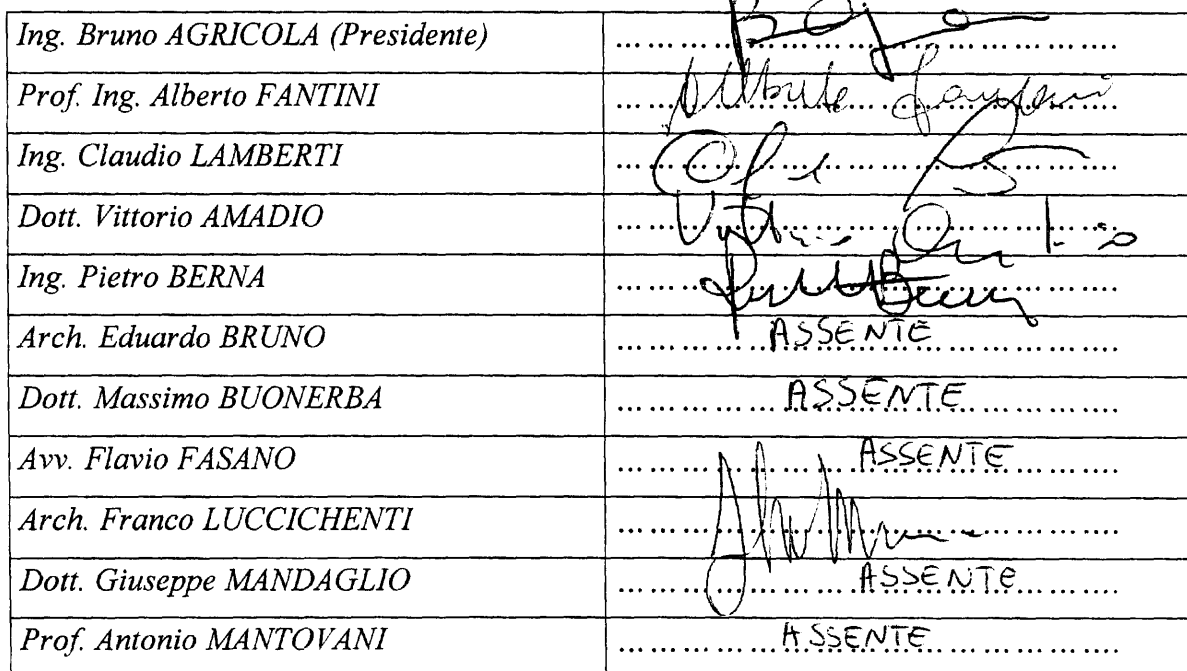 Ing. Bruno AGRICOLA (Presidente)
Prof. Ing. Alberto FANTINI
Ing. Claudio LAMBERTI
Dott. Vittorio AMADIO
Ing. Pietro BERNA
Arch. Eduardo BRUNO ASSENTE
Dott. Massimo BUONERBA ASSENTE
Avv. Flavio FASANO ASSENTE
Arch. Franco LUCCICHENTI
Dott. Giuseppe MANDAGLIO ASSENTE
Prof. Antonio MANTOVANI ASSENTE